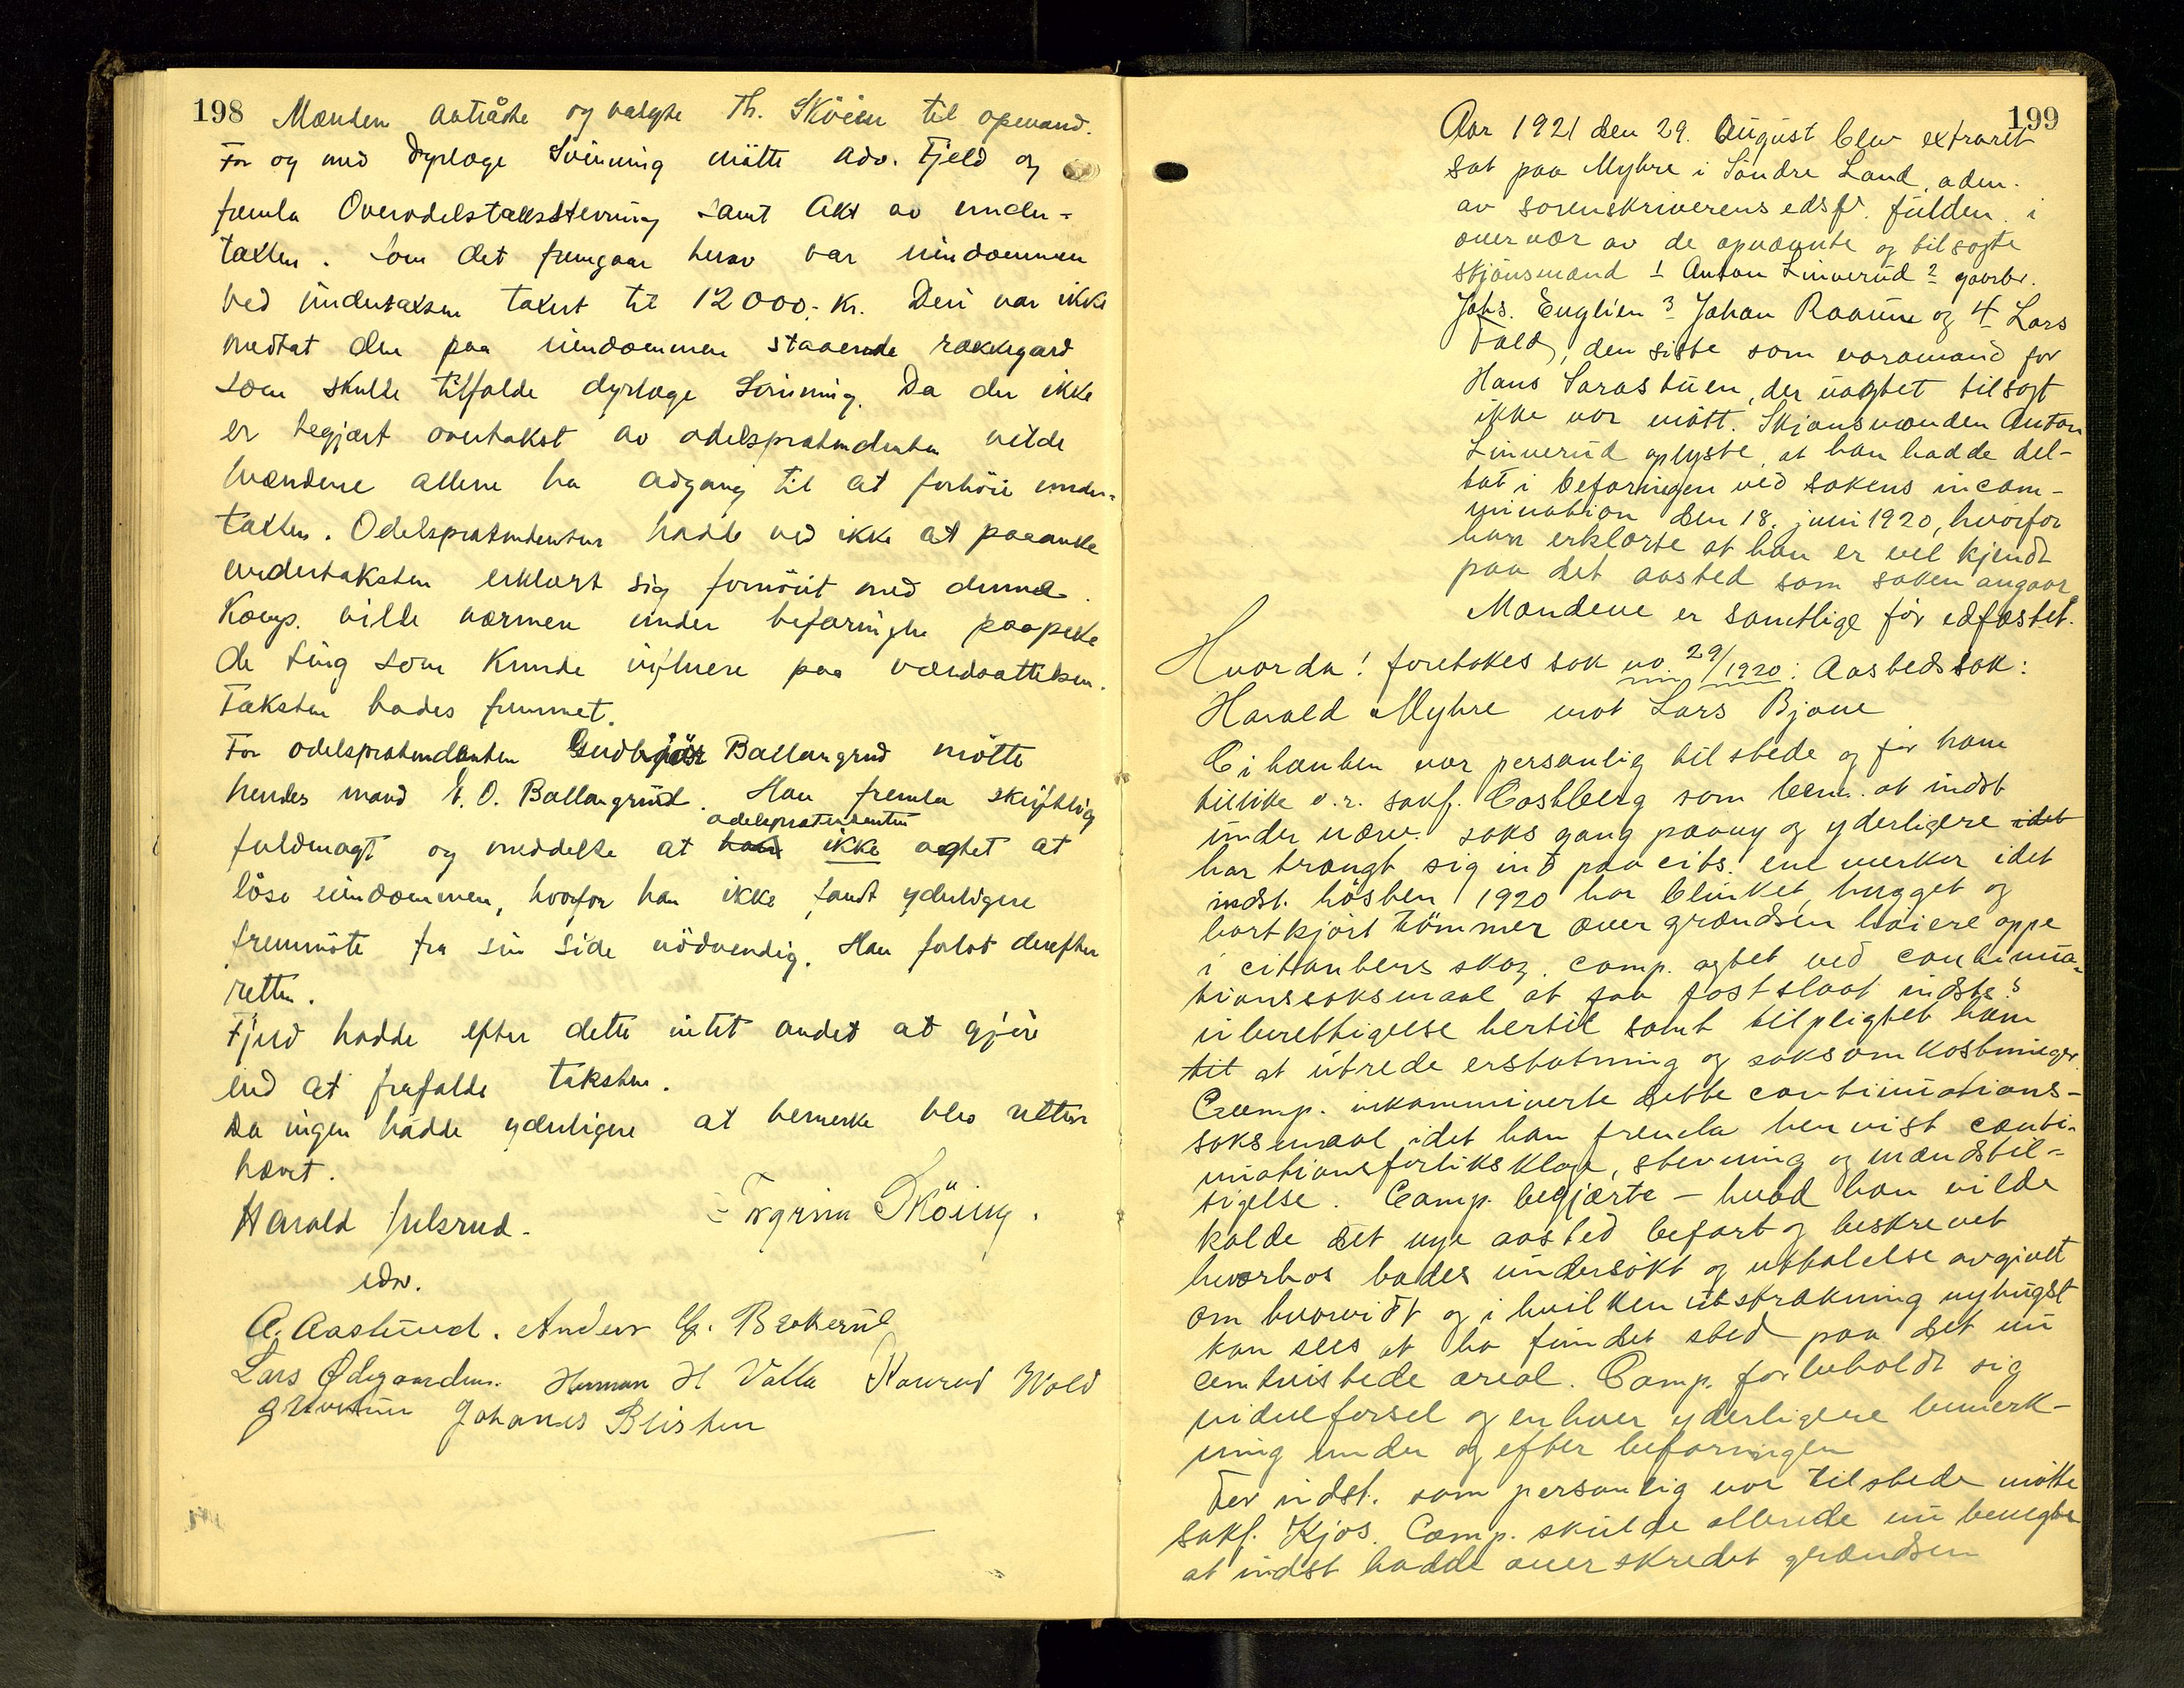 198 Mænden avtraadte og valgte Th. Sköien til opmand.
For og med dyrlæge Svinning mötte adv. Fjeld og
fremla Overodelstakststevning samt Akt av under-
taxten. Som det fremgaar herav var eiendommen
ved undertaksten taxert til 12000,- kr. Deri var ikke
medtat den paa eiendommen staaende rakkegard
som skulde tilfalde dyrlæge Svinning. Da der ikke
er begjært overtakst av odelsprætendenten vilde
mændene allene ha adgang til at forhöie under-
taxten. Odelsprætendenten hadde ved ikke at paaanke
undertaksten erklært sig fornöiet med denne.
Komp. vilde nærmere under befaringen paapeke
de ting som kunde influere paa værdsættelsen.
Taksten bades fremmet.
For odelsprætendenten Gudbjör Ballangrud mötte
hendes mand I. O. Ballangrud. Han fremla skriftlig
odelsprætendenten
fuldmagt og meddelte at han ikke agtet at
löse eiendommen, hvorfor han ikke fandt yderligere
fremmöte fra sin side nödvendig. Han forlot derefter
retten.
Fjeld hadde efter dette intet andet at gjöre
end at frafalde taksten.
Da ingen hadde yderligere at bemerke blev retten
hævet.
Harald Julsrud. Torgrim Sköien.
edsv.
A. Aaslund. Anders G. Brakerud
Lars Ødegaarden. Herman H Valla Konrad Wold
Johannes Blisten
199
Aar 1921 den 29. August blev extraret
sat paa Myhre i Söndre Land, adm.
av sorenskriverens edsf. fuldm. i
overvær av de opnævnte og tilsagte
skjönsmænd 1 Anton Linnerud 2 gaarbr.
Johs. Englien 3 Johan Raaum og 4 Lars
Fald, den siste som varamand for
Hans Sarastuen, der uagtet tilsagt
ikke var mött. Skjönsmanden Anton
Linnerud oplyste, at han hadde del-
tat i befaringen ved sakens incam-
mination den 18. juni 1920, hvorfor
han erklærte at han er vel kjendt
paa det aasted som saken angaar
Mændene er samtlige för edfæstet.
Hvorda! foretokes sak no. 29/1920: Aastedssak:
Harald Myhre mot Lars Bjone
Citanten var personlig tilstede og för ham
tillike o.r. sakf. Castberg som bem. at indst
under nærv. saks gang paany og yderligere idet
har trængt sig ind paa cits. enemerker idet
indst. hösten 1920 har blinket, hugget og
bortkjört tömmer over grændsen höiere oppe
i citanters skog. Comp. agtet ved continua-
tionssöksmaal at faa fastslaat indsts
uberettigelse hertil samt tilpligtet ham
til at utrede erstatning og saksomkostninger.
Comp. inkamminerte dette continuations-
söksmaal idet han fremla henvist conti-
nuationsforliksklage, stevning og mændstil-
sigelse. Comp. begjærte - hvad han vilde
kalde det nye aasted befart og beskrevet
hvorhos bades undersökt og uttalelse avgivet
om hvorvidt og i hvilken utstrækning nyhugst
kan sees at ha fundet sted paa det nu
omtvistede areal. Comp. forbeholdt sig
vidneförsel og enhver yderligere bemerk-
ning under og efter befaringen
For indst. som personlig var tilstede mötte
sakf. Kjos. Comp. skulde allerede nu benegte
at indst hadde overskredet grændsen